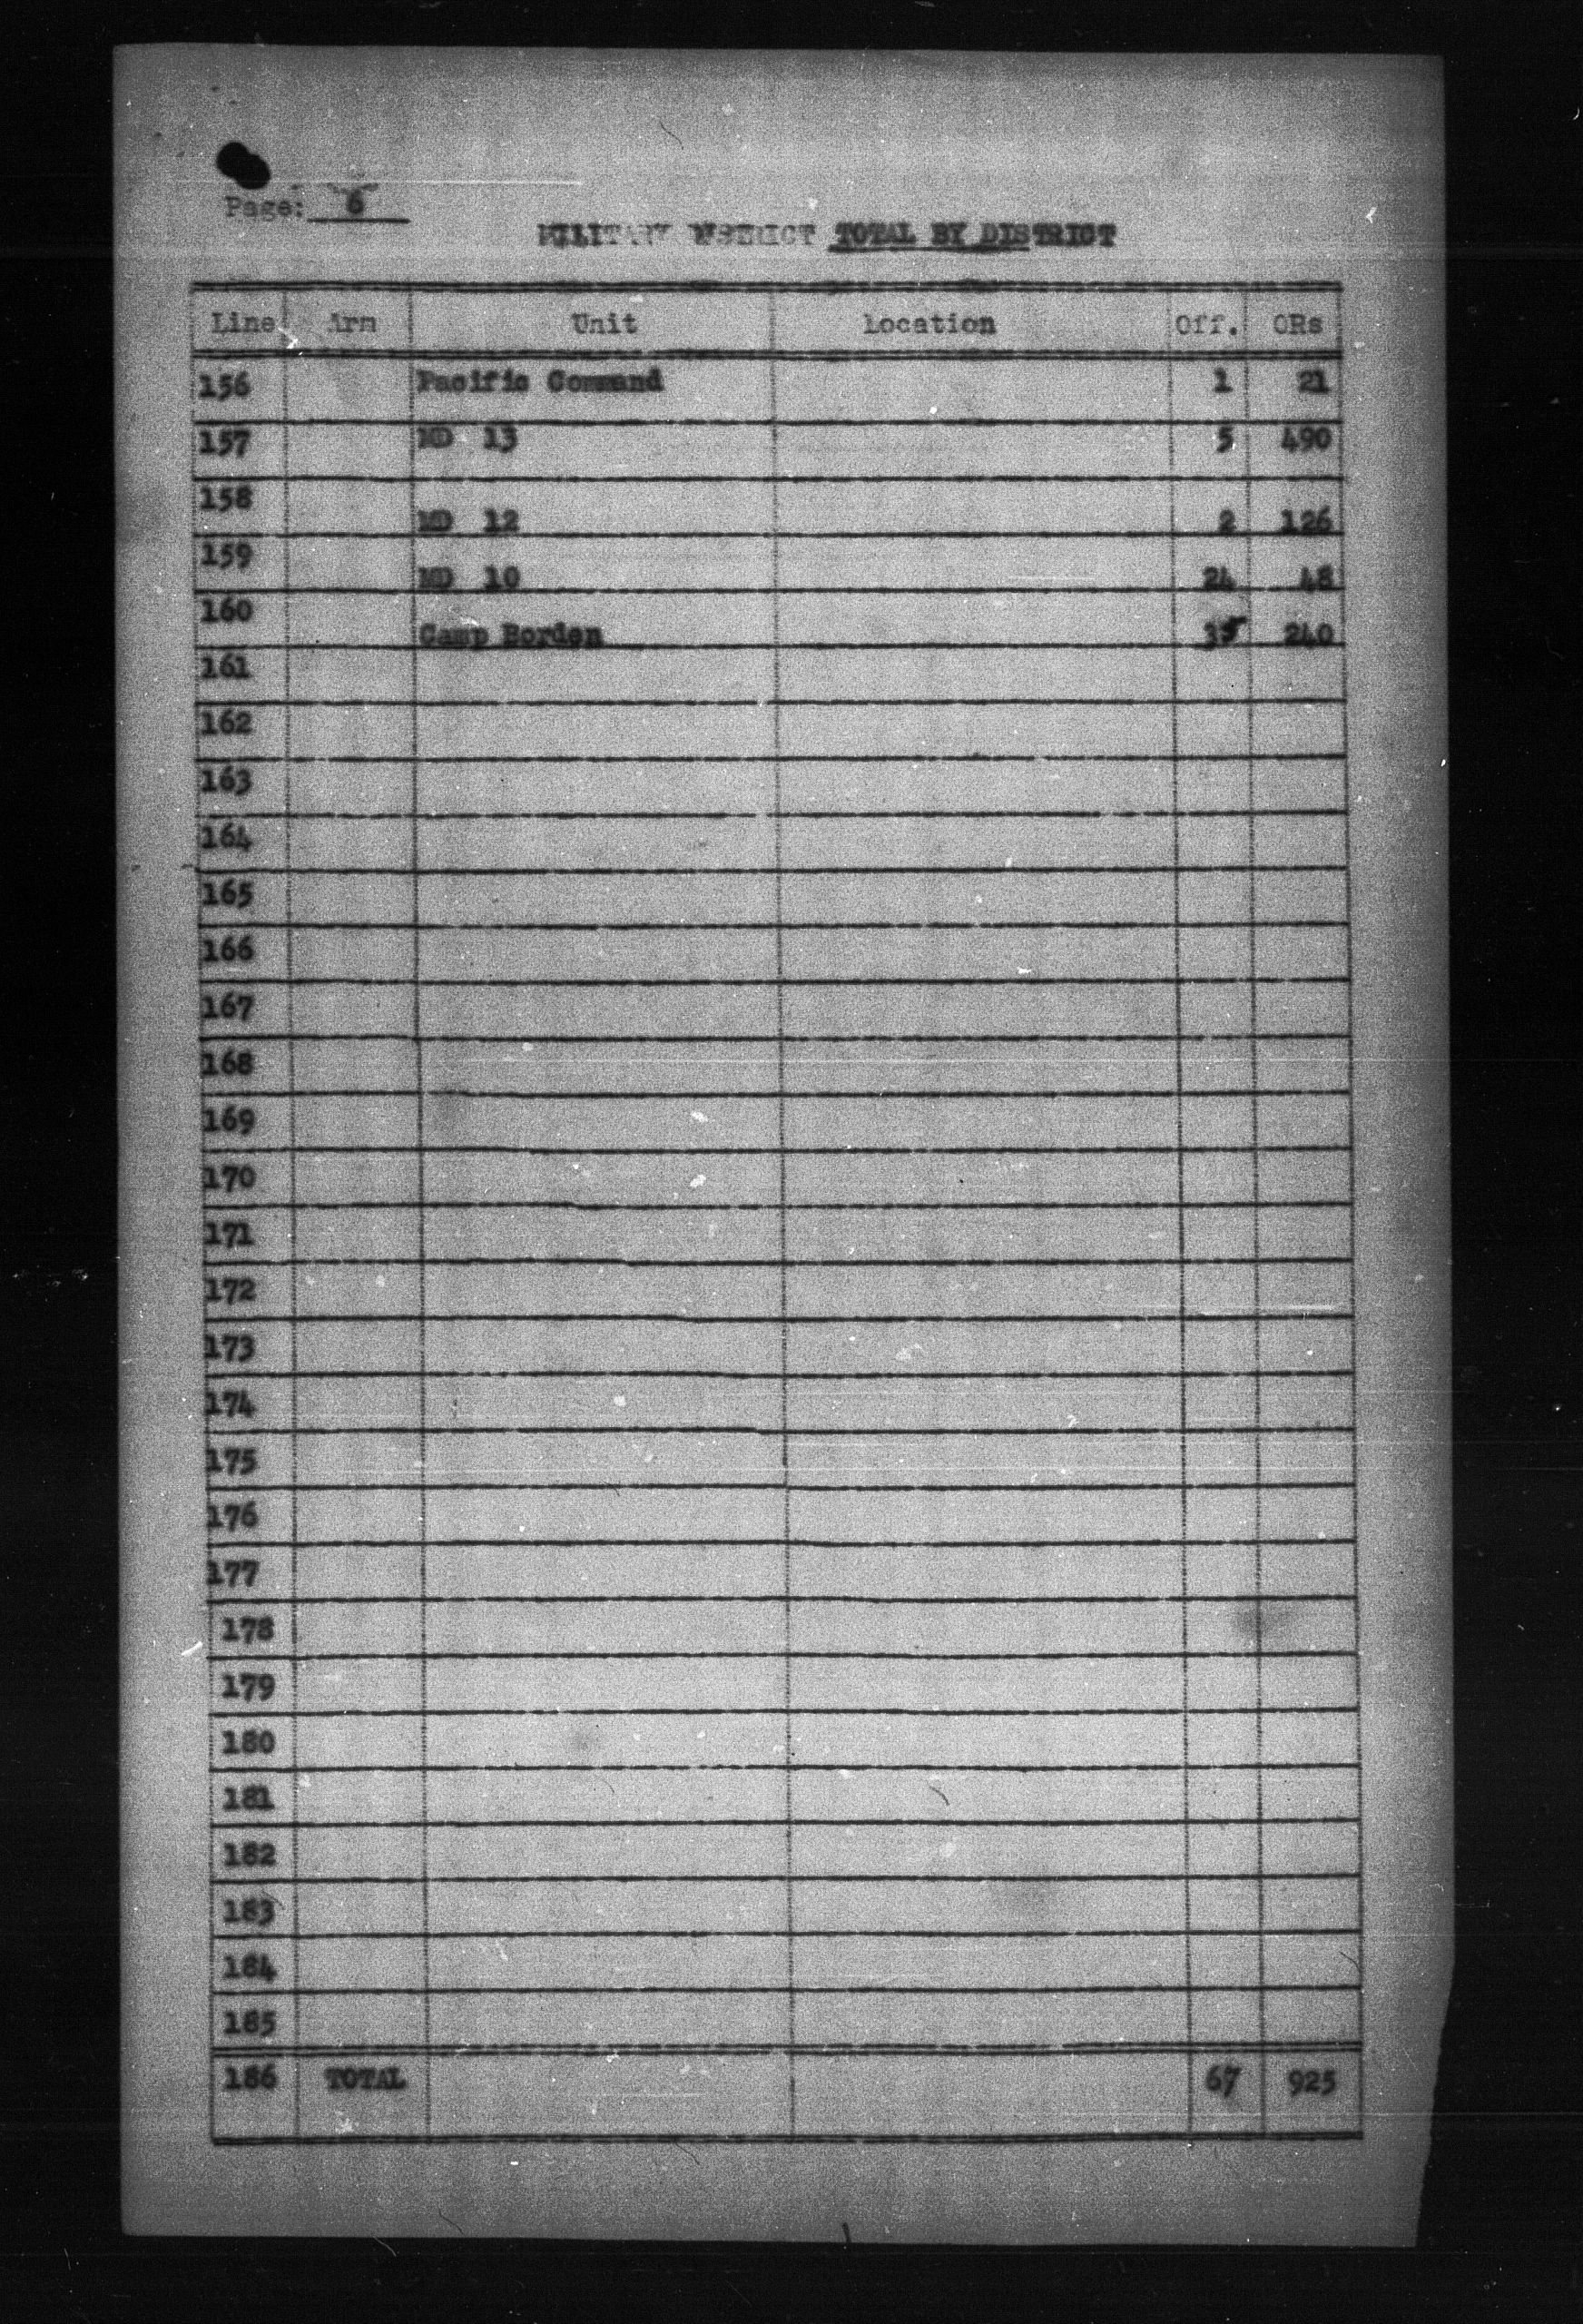 Page: 6
MILITARY DISTRICT TOTAL BY DISTRICT
Line Arm Unit Location Off. ORs
156 Pacific Command 1 21
157 MD 13 5 490
158 MD 12 2 126
159 MD 10 24 48
160 Camp Borden 35 240
161
162
163
164
165
166
167
168
169
170
171
172
173
174
175
176
177
178
179
180
181
182
183
184
185
186 TOTAL 67 925